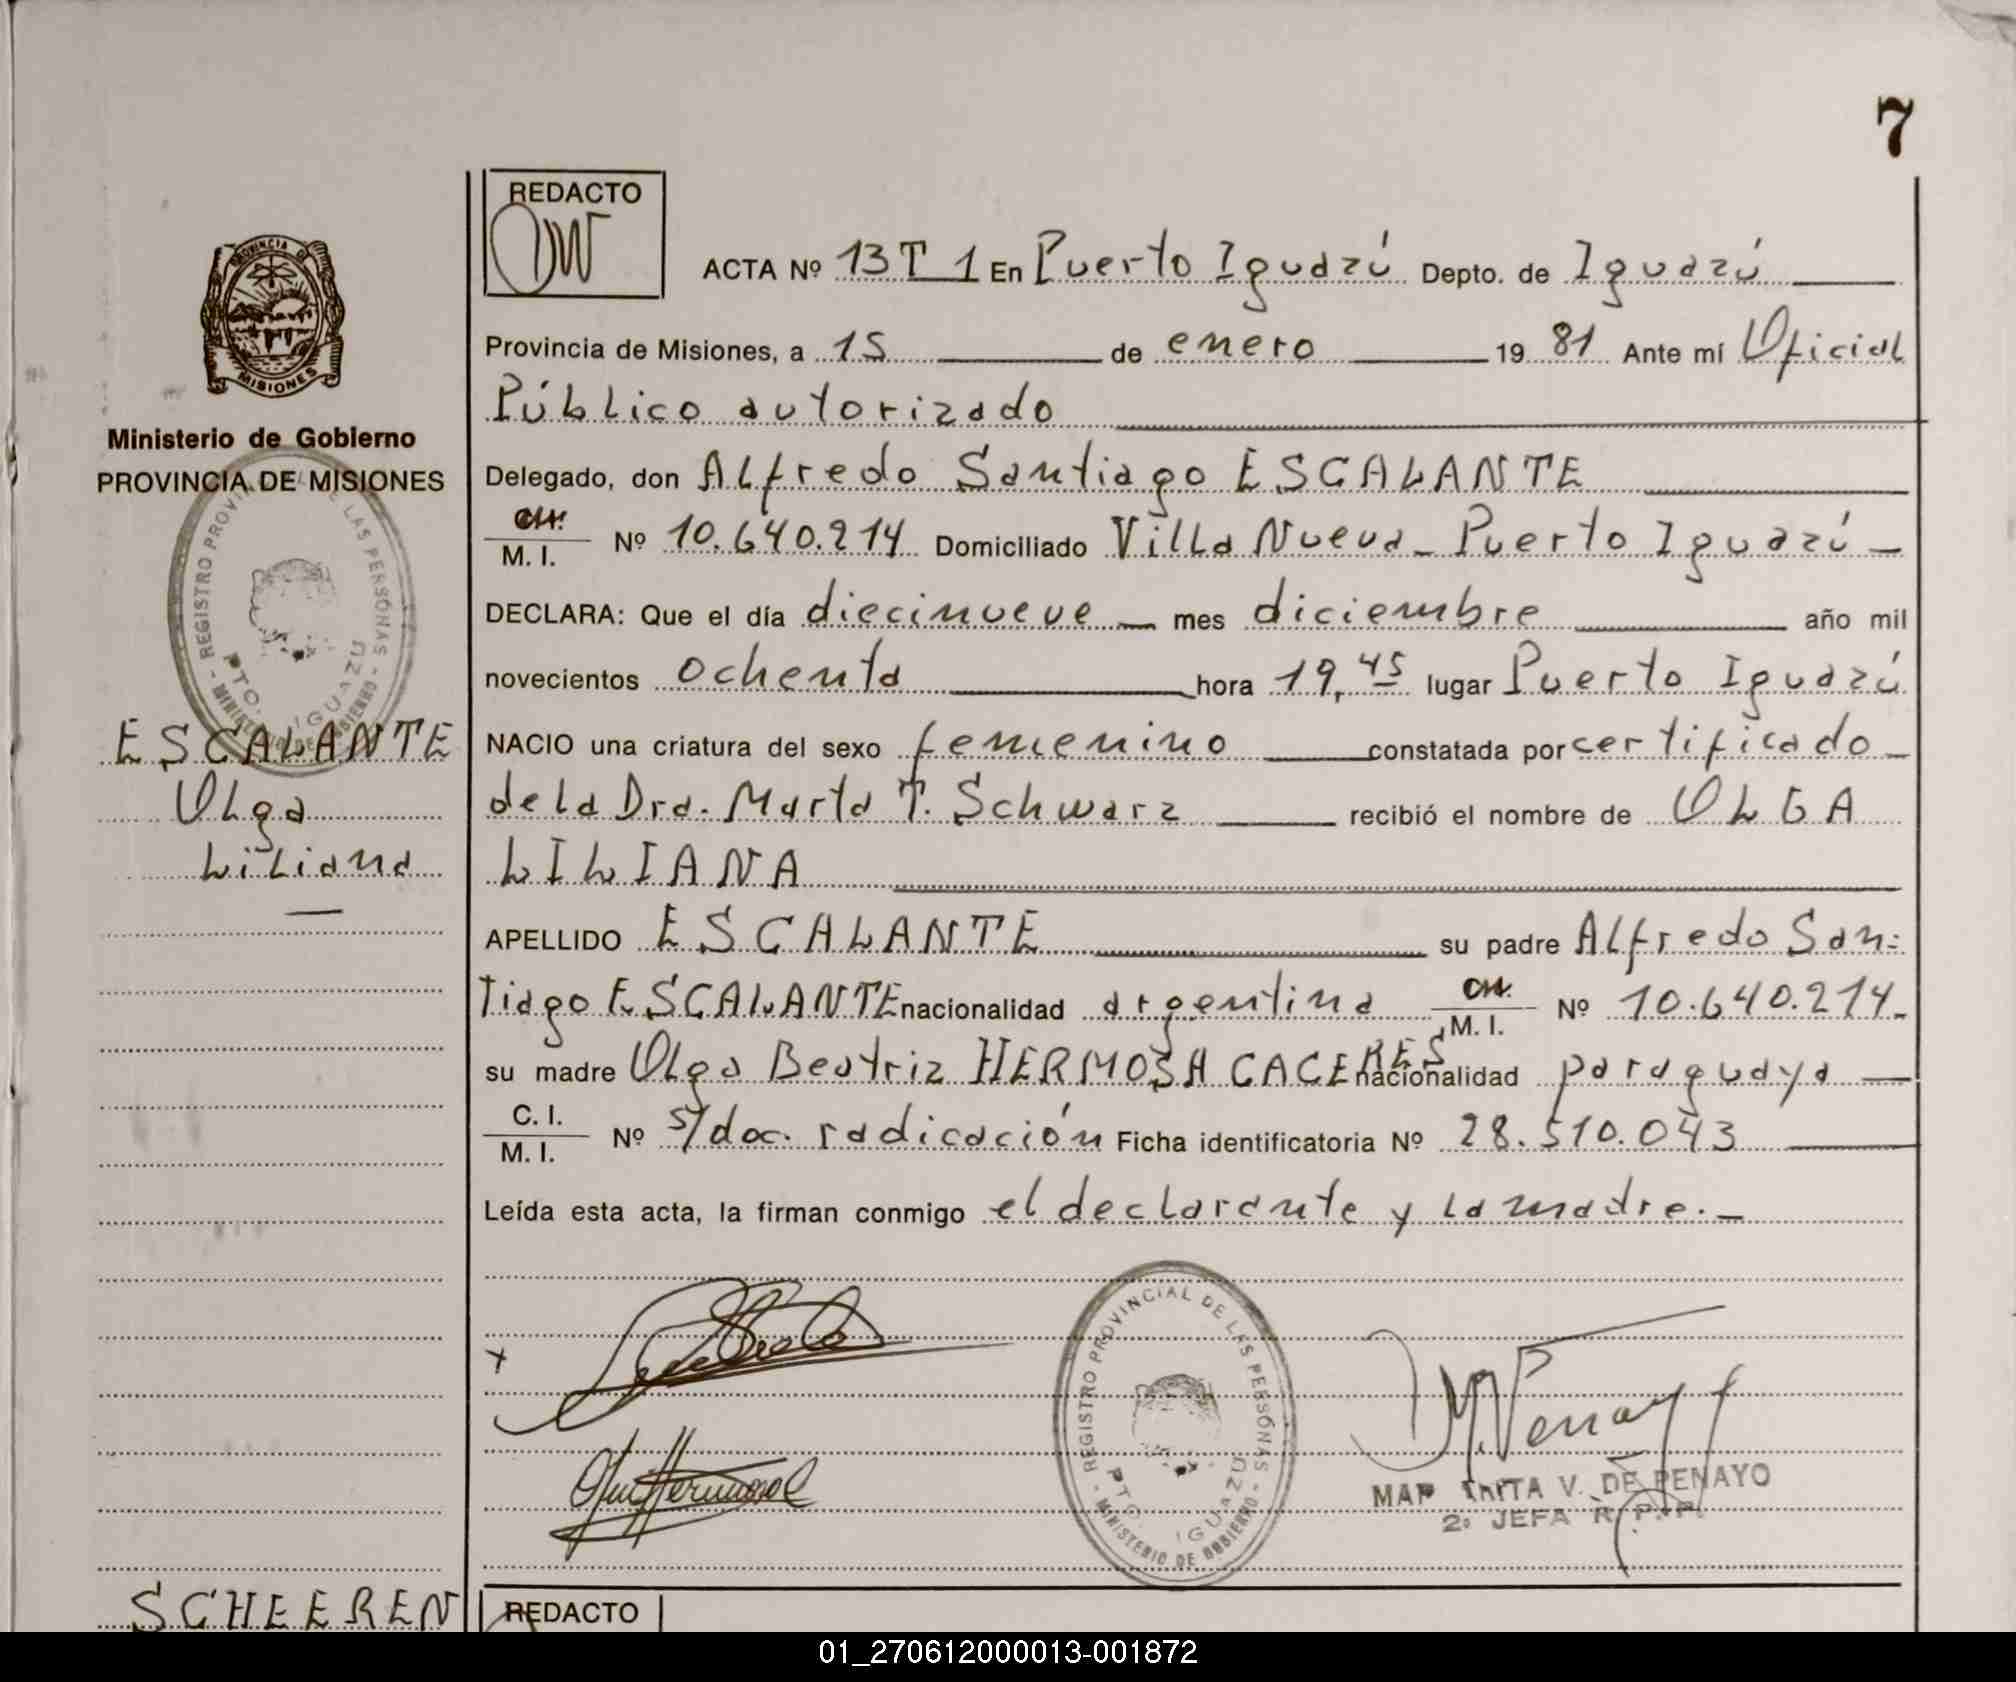 7
REDACTO
ACTA Nº 13 T 1 En Puerto Iguazú Depto. de Iguazú
Provincia de Misiones, a 15 de enero 19 81 Ante mí Oficial
Público autorizado
Delegado, don Alfredo Santiago ESCALANTE
M. I. Nº 10.640.214 Domiciliado Villa Nueva - Puerto Iguazú -
DECLARA: Que el día diecinueve mes diciembre año mil
novecientos ochenta hora 19,45 lugar Puerto Iguazú
NACIO una criatura del sexo femenino constatada por certificado
de la Dra. Marta T. Schwarz recibió el nombre de OLGA
LILIANA
APELLIDO ESCALANTE su padre Alfredo San=
tiago ESCALANTE nacionalidad argentina M. I. Nº 10.640.214.
su madre Olga Beatriz HERMOSA CACERES nacionalidad paraguaya
C. I.
M. I. Nº s/doc. radicación Ficha identificatoria Nº 28.510.043
Leída esta acta, la firman conmigo el declarante y la madre. -
PROVINCIA DE
MISIONES
Ministerio de Gobierno
PROVINCIA DE MISIONES
REGISTRO PROVINCIAL DE LAS PERSONAS - MINISTERIO DE GOBIERNO -
PTO. IGUAZU
ESCALANTE
Olga
Liliana
REGISTRO PROVINCIAL DE LAS PERSONAS - MINISTERIO DE GOBIERNO -
PTO. IGUAZU
V. DE PENAYO
2º JEFA R. P. P.
SCHEEREN
REDACTO
01_270612000013-001872